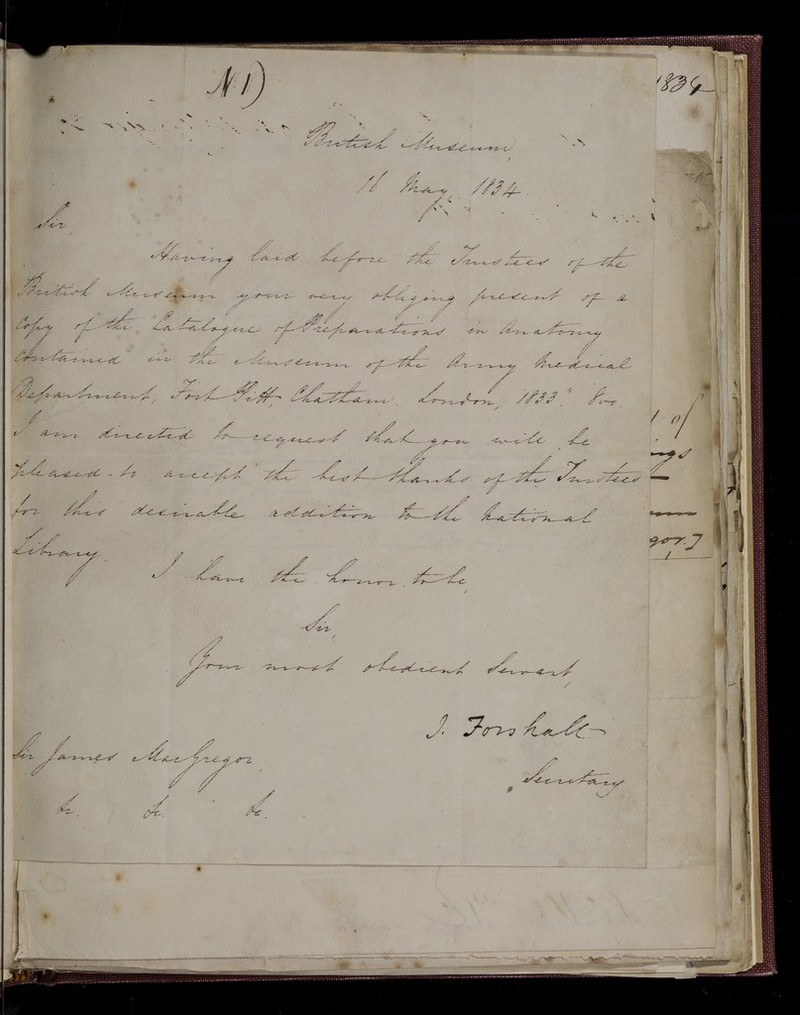 N 1)
1834
British Museum,
May 1834.
Sir,
Having laid before the Trustees of the
British Museum your very obliging present of a
Copy of the "Catalogue of Preparations in Anatomy
contained in the Museum of the Army Medical
Department, Fort Pitt, Chatham. London, 1833." 8vo.
I am directed to request that you will be
pleased to accept the best thanks of the Trustees
for this desirable addition to the National
Library.
I have the honor to be,
Sir,
Your most obedient Servant,
J. Forshall
Secretary
Sir James MacGregor,
&c. &c. &c.
of
ngs
gor.]